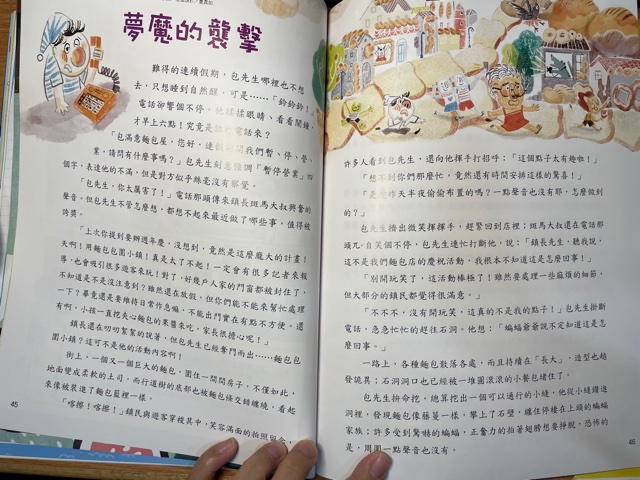 夢魔的襲擊
難得的連續假期,包先生哪裡也不想
去,只想睡到自然醒,可是……「鈴鈴鈴!」
電話卻響個不停,他揉揉眼睛、看看鬧鐘,
才早上六點!究竟是誰打電話來?
「包滿意麵包屋,您好,連假期間我們暫、停、營、
業,請問有什麼事嗎?」包先生刻意強調「暫停營業」四
個字,表達他的不滿,但是對方似乎絲毫沒有察覺。
「包先生,你太厲害了!」電話那頭傳來鎮長斑馬大叔興奮的
聲音。但包先生不管怎麼想,都想不起來最近做了哪些事,值得被
誇獎。
「上次你提到要辦週年慶,沒想到,竟然是這麼龐大的計畫!
天啊!用麵包包圍小鎮!真是太了不起!一定會有很多記者來報
導,也會吸引很多遊客來玩!對了,好幾戶人家的門窗都被封住了,
不知道是不是沒注意到?雖然還在放假,但你們能不能來幫忙處理
一下?畢竟還是要維持日常作息嘛,不能出門實在有點不方便。還
有啊,小孩一直挖夾心麵包的果醬來吃,家長很擔心呢!」
鎮長還在叨叨絮絮的說著,但包先生已經奪門而出……麵包包
圍小鎮?這可不是他的活動內容啊!
街上,一個又一個巨大的麵包,圍住一間間房子,不僅如此,
地面變成柔軟的土司,而行道樹的底部也被麵包條交錯纏繞,看起
來像被裝進了麵包籃裡一樣。
「喀擦!喀擦!」鎮民與遊客穿梭其中,笑容滿面的拍照留念,
45
許多人看到包先生,還向他揮手打招呼:「這個點子太有趣啦!」
「想不到你們那麼忙,竟然還有時間安排這樣的驚喜!」
「是趁昨天半夜偷偷布置的嗎?一點聲音也沒有耶,怎麼做到
的?」
包先生擠出微笑揮揮手,趕緊回到店裡;斑馬大叔還在電話那
頭兀自笑個不停,包先生連忙打斷他,說:「鎮長先生,聽我說,
這不是我們麵包店的慶祝活動,我根本不知道這是怎麼回事!」
「別開玩笑了,這活動棒極了!雖然要處理一些麻煩的細節,
但大部分的鎮民都覺得很滿意。」
「不不不,沒有開玩笑,這真的不是我的點子!」包先生掛斷
電話,急急忙忙的趕往石洞。他想:「蝙蝠爺爺說不定知道是怎
麼回事。」
一路上,各種麵包散落各處,而且持續在「長大」,造型也越
發詭異;石洞洞口也已經被一堆圓滾滾的小餐包堵住了。
包先生拚命挖,總算挖出一個可以通行的小縫,他從小縫鑽進
洞裡,發現麵包像藤蔓一樣,攀上了石壁,纏住停棲在上頭的蝙蝠
家族;許多受到驚嚇的蝙蝠,正奮力的拍著翅膀想要掙脫,恐怖的
是,周圍一點聲音也沒有。
46